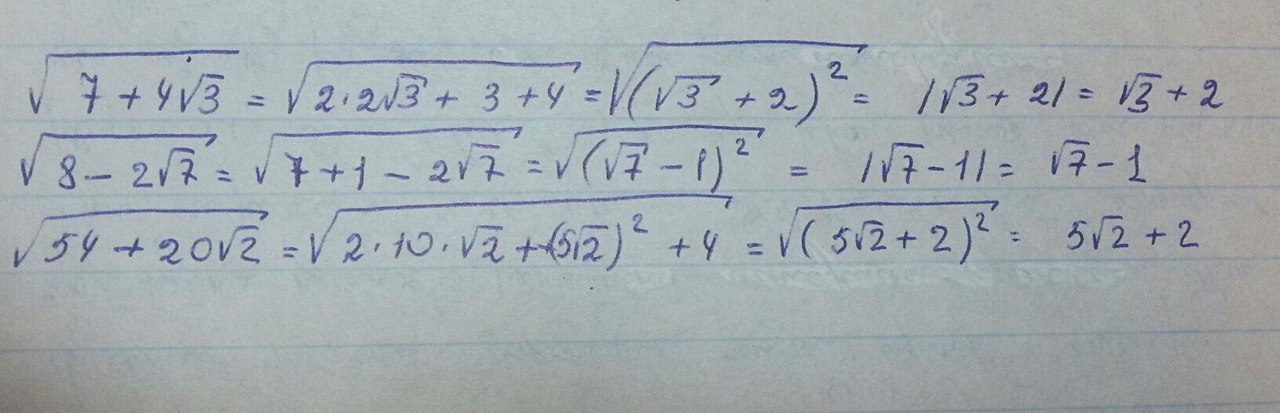 √(7 + 4√3) = √(2·2√3 + 3 + 4) = √((√3 + 2)²) = |√3 + 2| = √3 + 2
√(8 − 2√7) = √(7 + 1 − 2√7) = √((√7 − 1)²) = |√7 − 1| = √7 − 1
√(54 + 20√2) = √(2·10·√2 + (5√2)² + 4) = √((5√2 + 2)²) = 5√2 + 2